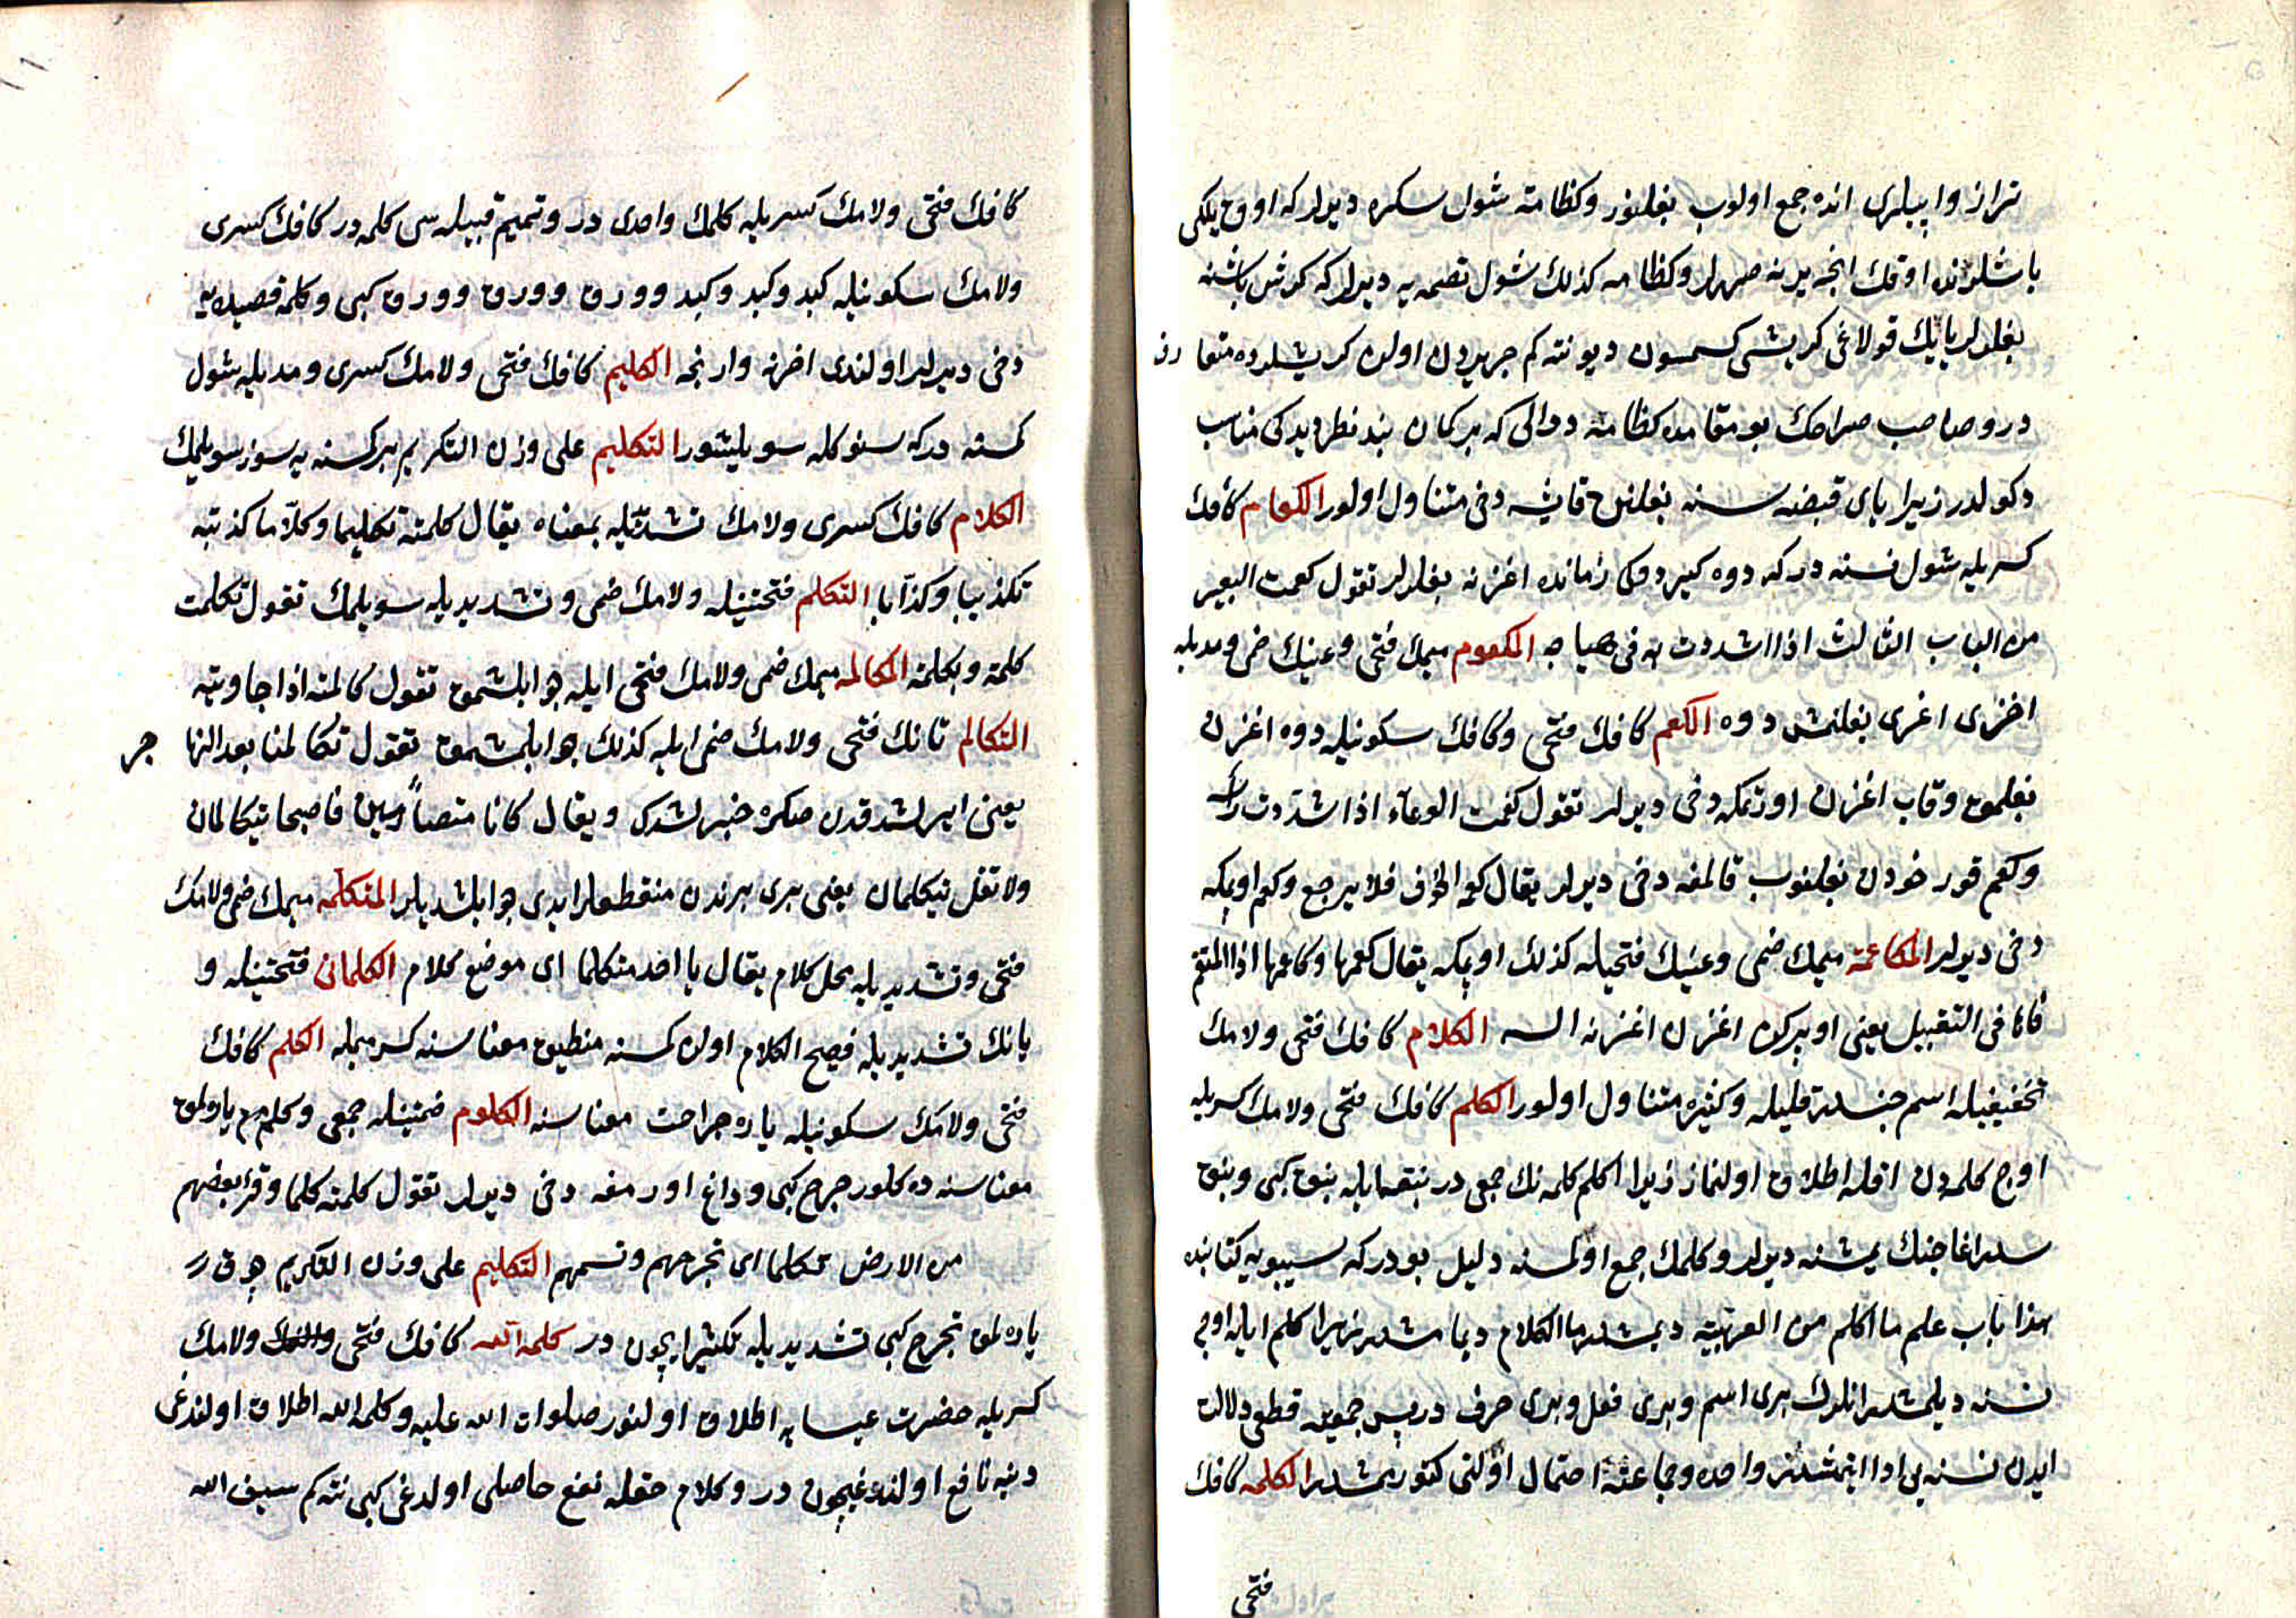 تراز وایپلری انده جمع اولوب بغلنور وکظامة شول سکره دیرلر که اوق یلکی
باشلرنده اوقك انجه یرنه صررلر وکظامه کذلك شول تصمه یه دیرلر که کرش باشنه
بغلرلر یایك قولاغی کریشی کسمسون دیو نته کم جریردن اولان کریشلرده متعارف
در وصاحب صراحك بو مقامده کظامة دوالی که بر کمان بندند دیدکی مناسب
دکولدر زیرا یای قبضه سنه بغلنن قایشه دخی متناول اولور الکعام کافك
کسریله شول نسنه در که دوه کیردوکی زمانده اغزنه بغلرلر تقول کعمت البعیر
من الباب الثالث اذا شددت به فی هیاجه المکعوم میمك فتحی وعینك ضمی ومدیله
اخری اغزی بغلنمش دوه الکعم کافك فتحی وکافك سکونیله دوه اغزن
بغلمق وقاب اغزن اورتمکه دخی دیرلر تقول کعمت الوعاء اذا شددت رأسه
وکعم قورخودن بغلنوب قالمغه دخی دیرلر یقال کعمه الخوف فلا یرجع وکعم اوپمکه
دخی دیرلر المکاعمة میمك ضمی وعینك فتحیله کذلك اوپمکه یقال کعمها وکاعمها اذا التقم
فاها فی التقبیل یعنی اوپرکن اغزن اغزنه السه الکلام کافك فتحی ولامك
تخفیفیله اسم جنسدر قلیله وکثیره متناول اولور الکلم کافك فتحی ولامك کسریله
اوج کلمه دن اقله اطلاق اولنماز زیرا الکلم کلمه نك جمعی در نبقه ایله نبق کبی ونبق
سدر اغاجنك یمشنه دیرلر وکلمك جمع اولمسنه دلیل بودر که سیبویه کتابنده
هذا باب علم ما الکلم من العربیة دیمشدر ما الکلام دیمامشدر زیرا کلم ایله اوج
نسنه دیلمشدر انلرك بری اسم وبری فعل وبری حرف در پس جمعیته قطعی دلالت
ایدن نسنه یی ادا ایتمشدر واحده وجماعته احتمال اولنی کتورمشدر الکلمه کافك
فتحی
کافك فتحی ولامك کسریله کلمك واحدی در وتمیم قبیله سی کلمه در کافك کسری
ولامك سکونیله کبد وکبد وکبد وورق وورق وورق کبی وکلمه قصیده یه
دخی دیرلر اولندی اخرنه وارنجه الکلیم کافك فتحی ولامك کسری ومدیله شول
کسنه در که سنوکله سویلیشور التکلیم علی وزن التکریم بر کسنه یه سوز سویلمك
الکلام کافك کسری ولامك تشدیدیله بمعناه یقال کلمته تکلیما وکلاما کذبته
تکذیبا وکذابا التکلم فتحتینله ولامك ضمی وتشدیدیله سویلمك تقول تکلمت
کلمة وبکلمة المکالمه میمك ضمی ولامك فتحی ایله جوابلشمق تقول کالمته اذا جاوبته
التکالم تانك فتحی ولامك ضمی ایله کذلك جوابلشمق تقول تکالمنا بعد التهاجر
یعنی ایرلشدقدن صکره خبرلشدك ویقال کانا متصارمین فاصبحا یتکالمان
ولا تقل یتکلمان یعنی بری برندن منقطعلر ایدی جوابلشدیلر المتکلمه میمك ضمی ولامك
فتحی وتشدیدیله محل کلام یقال ما اجد متکلما ای موضع کلام الکلمانی فتحتینله و
یانك تشدیدیله فصیح الکلام اولان کسنه منطیق معناسنه کسر میمله الکلم کافك
فتحی ولامك سکونیله یاره جراحت معناسنه الکلوم ضمتینله جمعی وکلم یارەلمق
معناسنه ده کلور جرح کبی وداغ اورمغه دخی دیرلر تقول کلمته کلما وقرأ بعضهم
من الارض تکلما ای تجرحهم وتسمهم التکلیم علی وزن التکریم چوق
یارەلمق تجریح کبی تشدیدیله تکثیر ایچون در کلمة الله کافك فتحی ولامك
کسریله حضرت عیسایه اطلاق اولنور صلوات الله علیه وکلمة الله اطلاق اولندغی
دینه نافع اولندوغیچون در وکلام حقله نفع حاصلی اولدغی کبی نته کم سیف الله